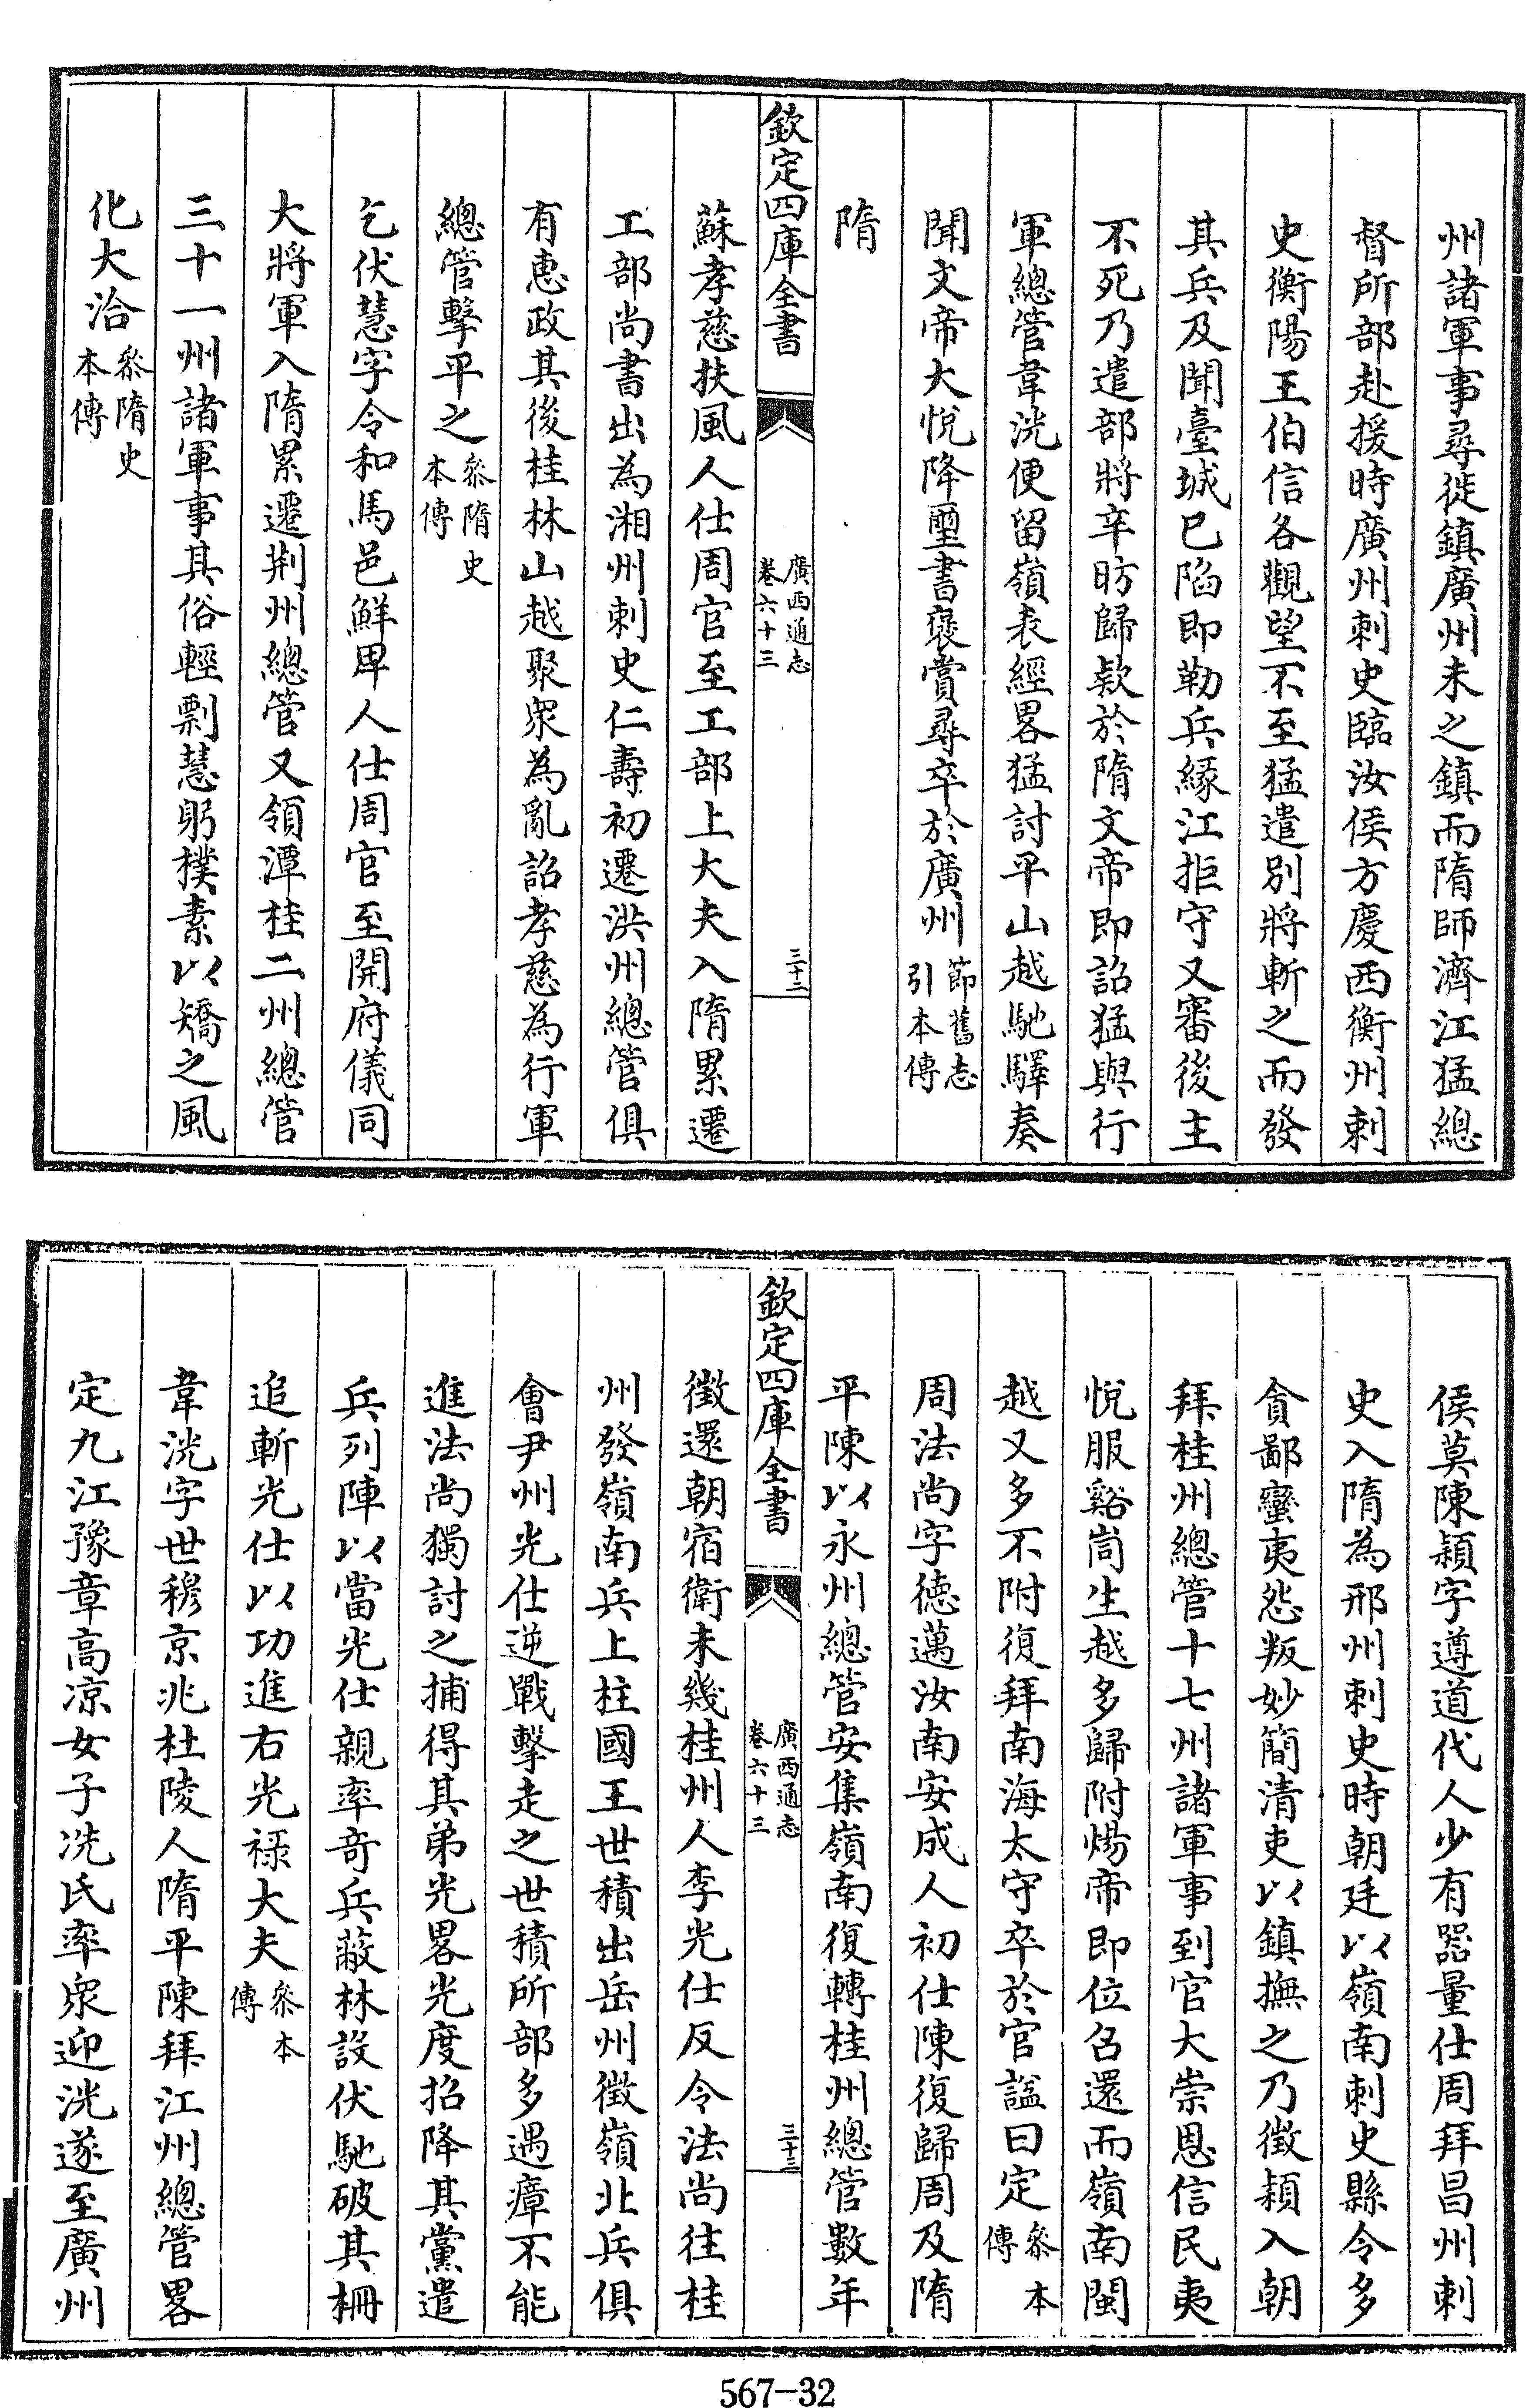 州諸軍事尋徙鎮廣州未之鎮而隋師濟江猛總
督所部赴援時廣州刺史臨汝侯方慶西衡州刺
史衡陽王伯信各觀望不至猛遣别將斬之而發
其兵及聞臺城已陷即勒兵縁江拒守又審後主
不死乃遣部將辛昉歸欵於隋文帝即詔猛與行
軍總管韋洸便留嶺表經畧猛討平山越馳驛奏
聞文帝大悅降璽書褒賞尋卒於廣州節舊志引本傳
隋
欽定四庫全書 廣西通志 卷六十三 三十二
蘇孝慈扶風人仕周官至工部上大夫入隋累遷
工部尚書出為湘州刺史仁壽初遷洪州總管俱
有惠政其後桂林山越聚衆為亂詔孝慈為行軍
總管擊平之叅隋史本傳
乞伏慧字令和馬邑鮮卑人仕周官至開府儀同
大將軍入隋累遷荆州總管又領潭桂二州總管
三十一州諸軍事其俗輕剽慧躬樸素以矯之風
化大洽叅隋史本傳
侯莫陳頴字遵道代人少有器量仕周拜昌州刺
史入隋為邢州刺史時朝廷以嶺南刺史縣令多
貪鄙蠻夷怨叛妙簡清吏以鎮撫之乃徵頴入朝
拜桂州總管十七州諸軍事到官大崇恩信民夷
悅服谿峝生越多歸附煬帝即位召還而嶺南閩
越又多不附復拜南海太守卒於官諡曰定叅本傳
周法尚字徳邁汝南安成人初仕陳復歸周及隋
平陳以永州總管安集嶺南復轉桂州總管數年
欽定四庫全書 廣西通志 卷六十三 三十三
徵還朝宿衛未幾桂州人李光仕反令法尚往桂
州發嶺南兵上柱國王世積出岳州徵嶺北兵俱
會尹州光仕逆戰擊走之世積所部多遇瘴不能
進法尚獨討之捕得其弟光畧光度招降其黨遣
兵列陣以當光仕親率奇兵蔽林設伏馳破其栅
追斬光仕以功進右光禄大夫叅本傳
韋洸字世穆京兆杜陵人隋平陳拜江州總管畧
定九江豫章高凉女子冼氏率衆迎洸遂至廣州
567-32